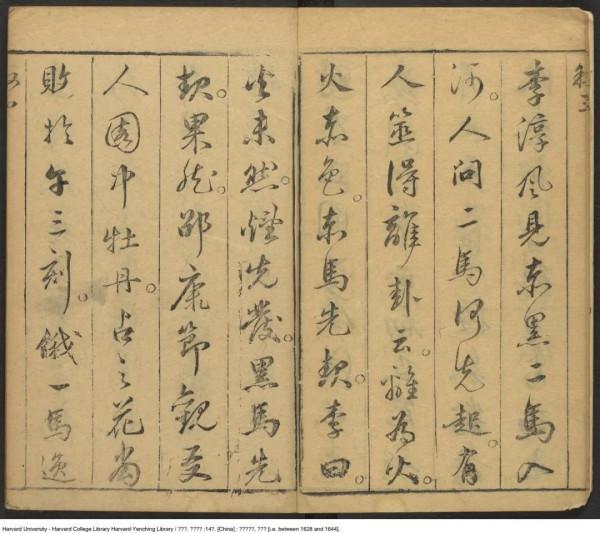 叙三
李淳風見赤黑二馬入
河。人問二馬何先起。有
人筮得離卦云。離為火。
火赤色。赤馬先起。李曰。
火未然。煙先發。黑馬先
起果然。邵康節觀友
人園中牡丹。占之花當
敗於午三刻。餓一馬逸
Harvard University - Harvard College Library Harvard-Yenching Library / ???. ???? :14?. [China] : ?????, ??? [i.e. between 1628 and 1644].